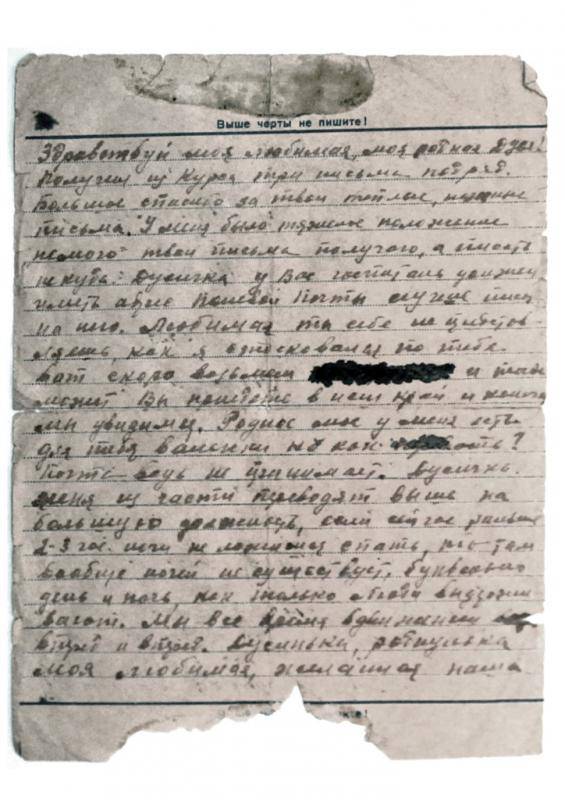 Выше черты не пишите!
Здравствуй моя любимая, моя родная Дуся!
Получил из Курска три письма подряд.
Большое спасибо за твои теплые, нежные
письма. У меня было тяжелое положение
немого твои письма получаю, а писать
некуда. Дусичка у Вас госпиталь должен
иметь адрес Полевой Почты лучше пиши
на него. Любимая ты себе не представ-
ляешь, как я стосковался по тебе
вот скоро возьмем и там
может Вы попадете в наш край и
мы увидимся. Родное мое у меня есть
для тебя валенки но как
Почта ведь не принимает. Дусичка
меня из части переводят выше на
большую должность, если сейчас раньше
2-3 час. ночи не ложишься спать, то там
вообще ночей не существует, буквально
день и ночь как только люди выдержи
вают. Мы все время в движении
вперёд и вперёд. Дусинька, родинушка
моя любимая, желанная наша